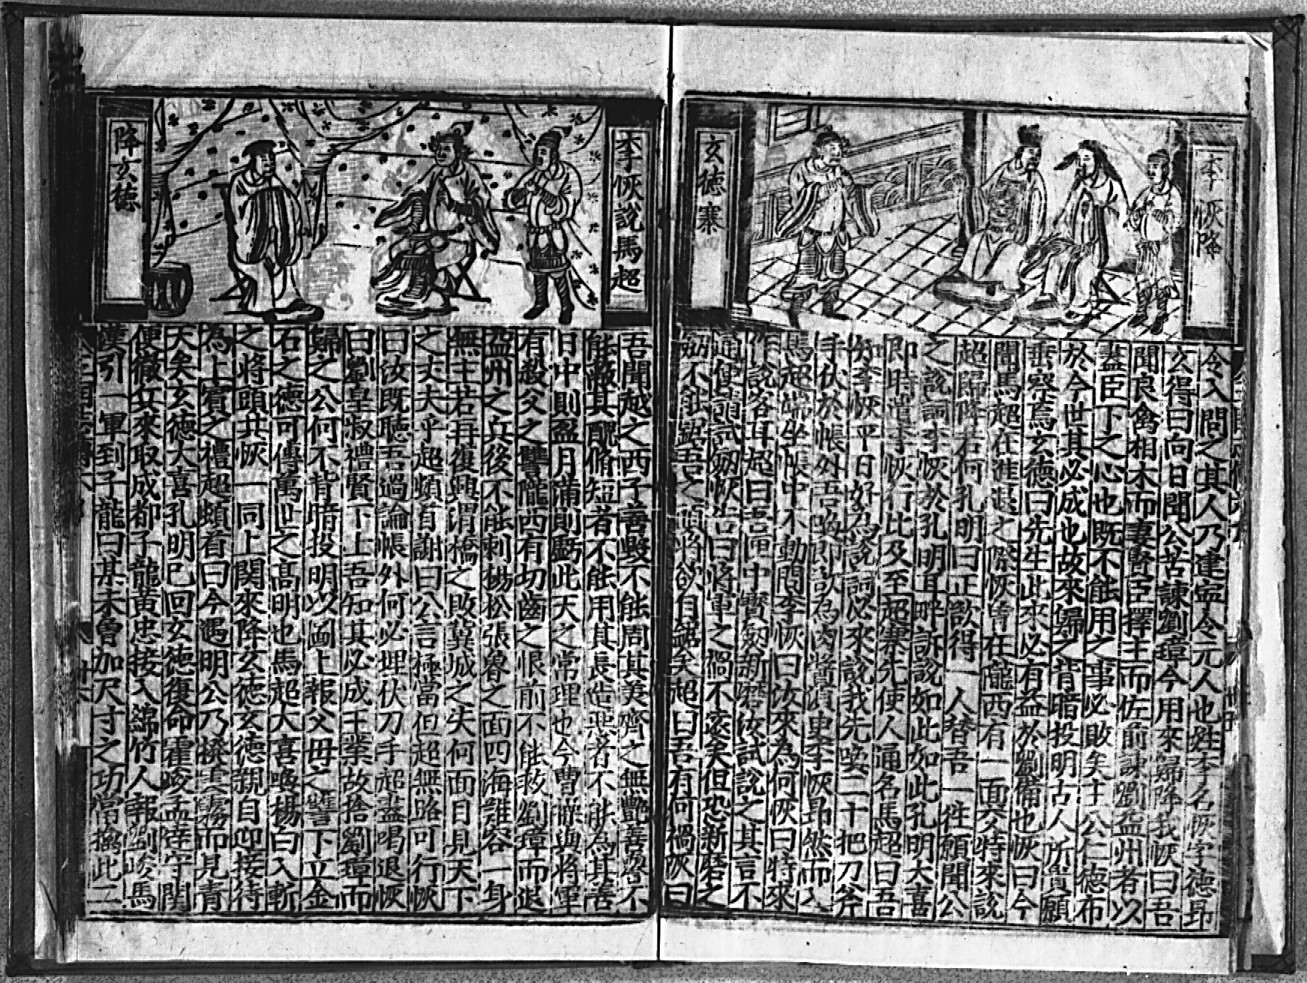 李恢降
玄德寨
令入問之其人乃建寧令元人也姓李名恢字德昂
玄得曰向日聞公苦諫劉璋今用來歸降我恢曰吾
聞良禽相木而妻賢臣擇主而佐前諫劉益州者以
盡臣下之心也既不能用之事必敗矣主公仁德布
於今世其必成也故來歸之背暗投明古人所貴願
垂察焉玄德曰先生此來必有益於劉備也恢曰今
聞馬超在進退之際恢昔在隴西有一面交特來說
超歸降若何孔明曰正欲得一人替吾一往願聞公
之說詞李恢於孔明耳畔訴說如此如此孔明大喜
即時遣李恢行比及至超寨先使人通名馬超曰吾
知李恢平日好說詞必來說我先喚二十把刀斧
手伏於帳外吾喚即
馬超端坐帳中不動問李恢曰汝來為何恢曰特來
作說客耳超曰吾匣中寶劍新磨汝試說之其言不
通便請試劔恢告曰將軍之禍不遠矣但恐新磨之
劔不能試吾之頭將欲自矣超曰吾有何禍恢曰
李恢說馬超
降玄德
吾聞越之西子善毀不能周其美齊之無艷善嫛不
能蔽其醜脩短者不能用其長造惡者不能為其善
日中則盈月滿則虧此天之常理也今曹操與將軍
有殺父之讐隴西有切齒之恨前不能救劉璋而退
益州之兵後不能刺楊松張魯之面四海難容一身
無主若再復興渭橋之敗冀城之失何面目見天下
之丈夫乎超頓首謝曰公言極當但超無路可行恢
曰汝既聽吾過論帳外何必埋伏刀手超盡喝退恢
曰劉皇叔禮賢下士吾知其必成王業故捨劉璋而
歸之公何不背暗投明以圖上報父母之讐下立金
石之德可傳萬世之高明也馬超大喜喚楊白入斬
之將頭共恢一同上関來降玄德玄德親自迎接待
為上賓之禮超頓首曰今遇明公乃撥雲霧而見青
天矣玄德大喜孔明已回玄德復命霍峻孟達守関
便徹兵來取成都子龍黃忠接入綿竹人報劉峻馬
漢引一軍到子龍曰某未曾加尺寸之功當擒此二